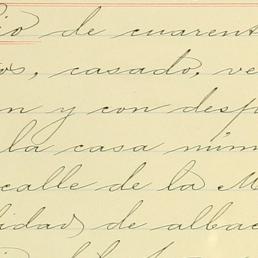 cio de cuarent
os, casado, ve
n y con desp
la casa núm
calle de la M
lidad de albac